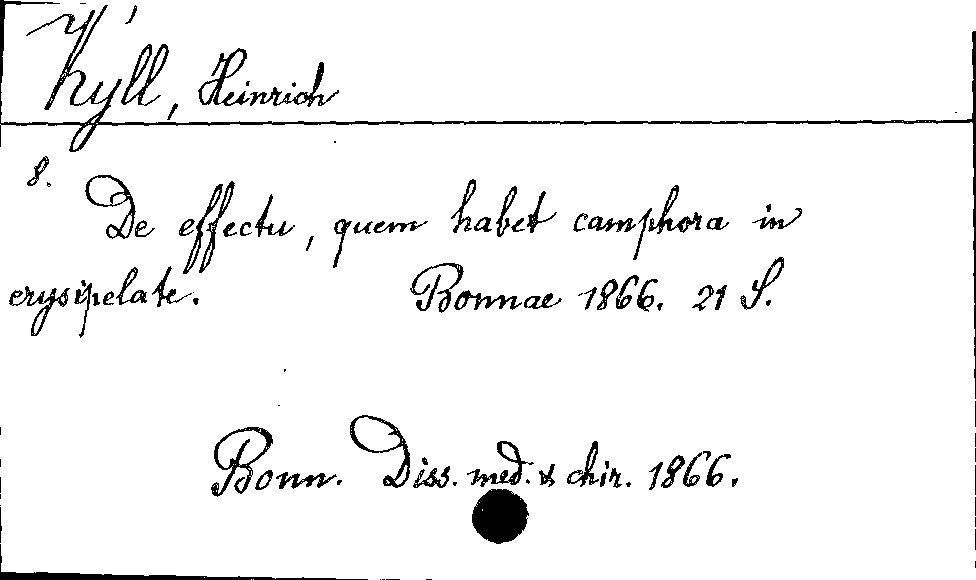 Kyll, Heinrich
8.
De effectu, quem habet camphora in
erysipelate. Bonnae 1866. 21 S.
Bonn. Diss. med. & chir. 1866.